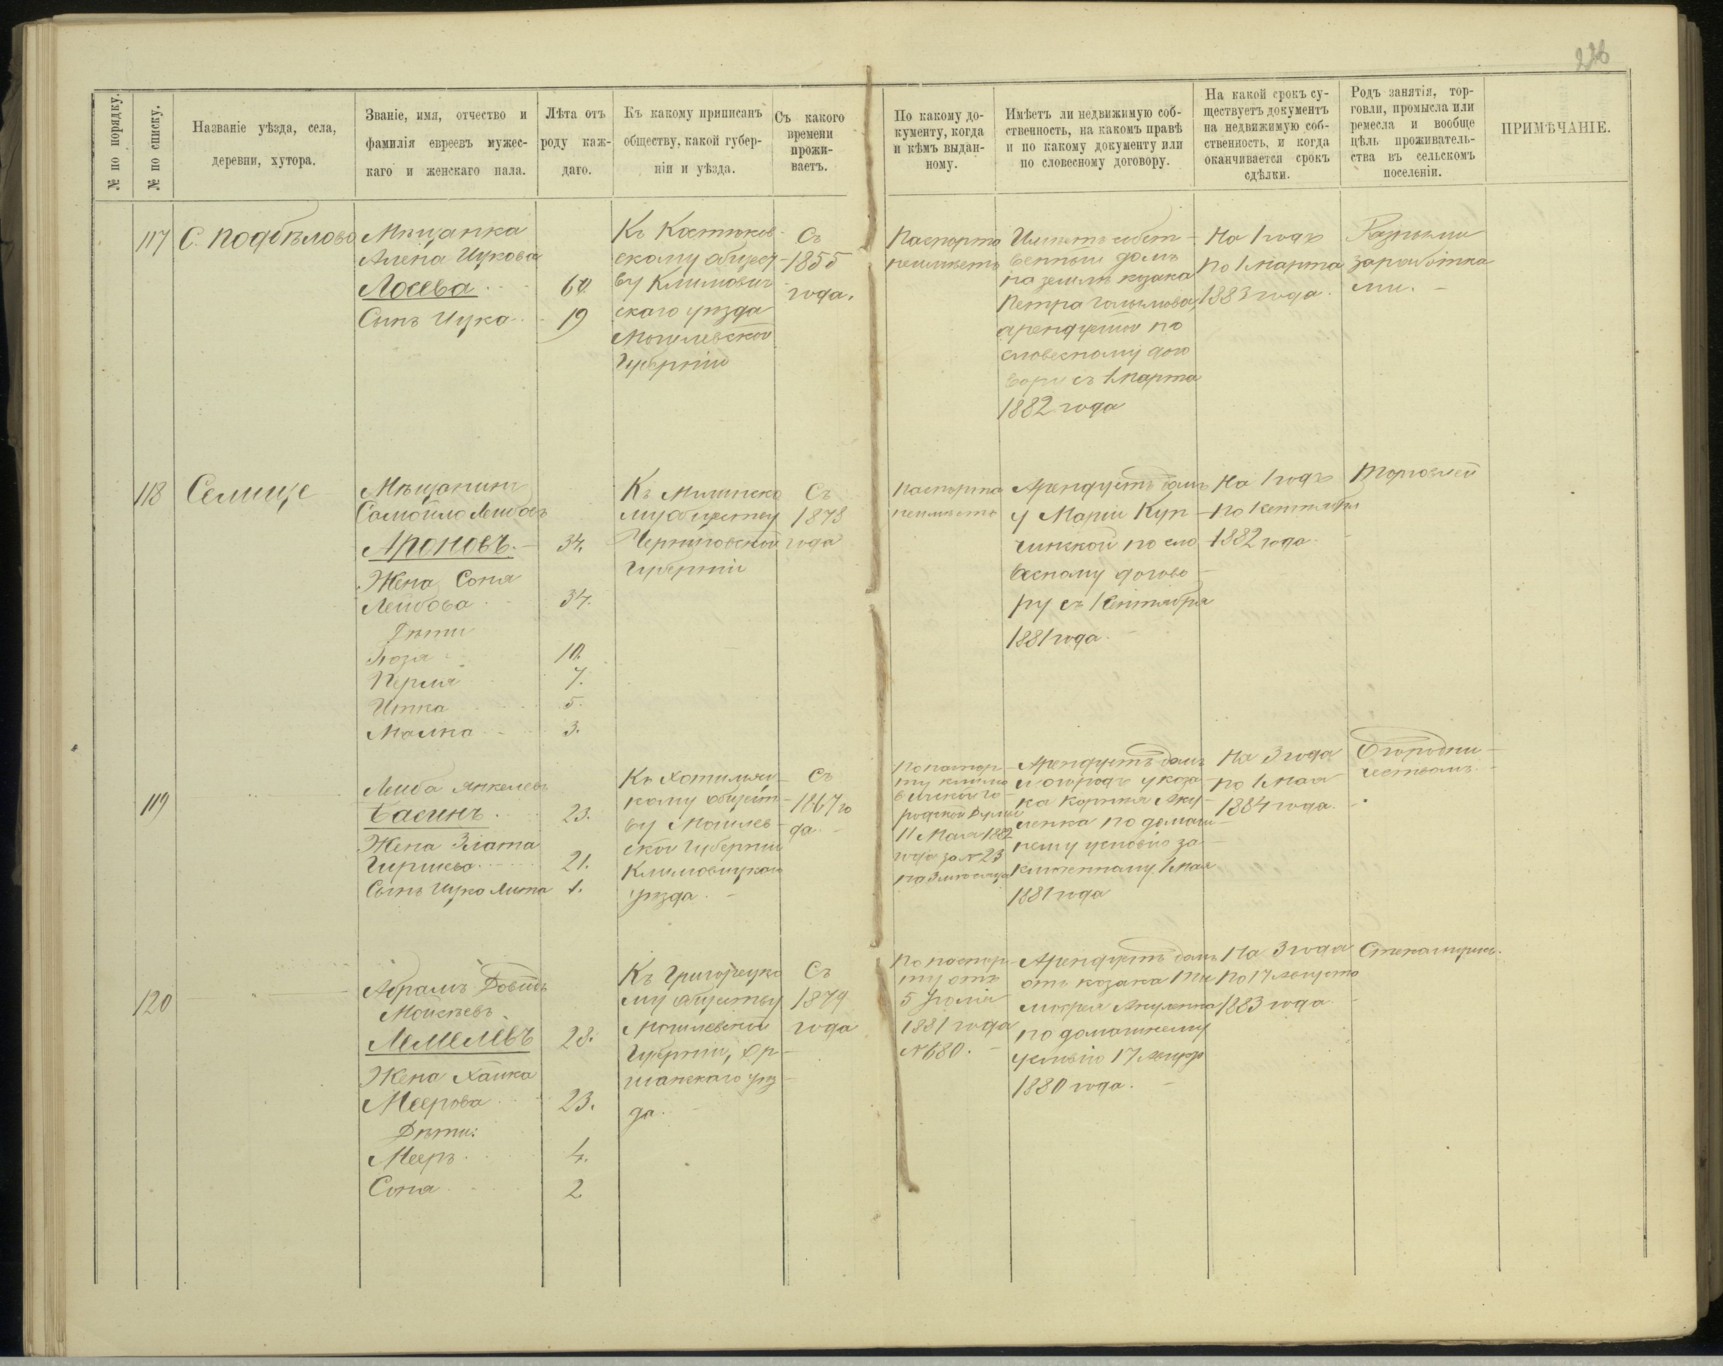 226
№ по порядку.
№ по списку.
Названіе уѣзда, села,
деревни, хутора.
Званіе, имя, отчество и
фамилія евреевъ мужес-
каго и женскаго пала.
Лѣта отъ
роду каж-
даго.
Къ какому приписанъ
обществу, какой губер-
ніи и уѣзда.
Съ какого
времени
прожи-
ваетъ.
По какому до-
кументу, когда
и кѣмъ выдан-
ному.
Имѣетъ ли недвижимую соб-
ственность, на какомъ правѣ
и по какому документу или
по словесному договору.
На какой срокъ су-
ществуетъ документъ
на недвижимую соб-
ственность, и когда
оканчивается срокъ
сдѣлки.
Родъ занятія, тор-
говли, промысла или
ремесла и вообще
цѣль проживатель-
ства въ сельскомъ
поселеніи.
ПРИМѢЧАНІЕ.
117
С. Подбѣлово
Мѣщанка
Алена Ицкова
Лосева
60
Сынъ Ицка
19
скому общест-
ву Климович
скаго уѣзда
Могилевской
Губерніи
Съ
1855
года.
Паспорта
неимѣетъ
Имѣетъ собст-
венный домъ
на землѣ козака
Петра
по
словесному дого
вору съ 1 марта
1882 года
На 1 годъ
по 1 марта
1883 года.
Разными
заработка
ми.
118
Селище
Мѣщанинъ
Самойло Лейбовъ
Ароновъ.
34.
Жена Соня
Лейбова
34.
Дѣти
10.
Перля
7.
Итка
5.
Малка
3.
Къ Мглинско
му обществу
Черниговской
Губерніи
Съ
1878
года
Паспорта
неимѣетъ
Арендуетъ домъ
у Маріи Куп-
чинской по сло
весному догово-
ру съ 1 Сентября
1881 года.
На 1 годъ
по 1 Сентября
1882 года.
Торговлей
119
Лейба Янкелевъ
Басинъ.
23.
Жена Злата
Гиршева
21.
Сынъ Ицко
1.
Къ Хотимскому
обществу
Могилев-
ской Губерніи
Климовицкаго
уѣзда.
Съ
1867 го
да.
По паспор-
ту
11 Мая 1882
года за № 23
Арендуетъ домъ
и огородъ у коза-
ка
по домаш-
нему условію за-
ключенному 1 мая
1881 года
На 3 года
по 1 мая
1884 года.
Огородни-
чествомъ.
120
Абрамъ Довидъ
Мойсѣевъ
Лемелевъ
28.
Жена Хайка
Меерова
23.
Дѣти:
Мееръ.
4.
Соня
2
му обществу
Могилевской
Губерніи, Ор-
шанскаго уѣз-
да.
Съ
1879
года
По паспор-
ту отъ
5 Іюля
1881 года
№ 680.
Арендуетъ домъ
отъ козака
по домашнему
условію 17 Августа
1880 года.
На 3 года
по 17 Августа
1883 года